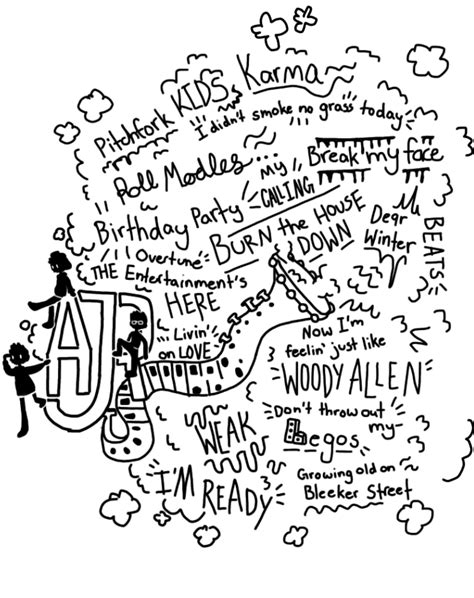 Karma
Pitchfork KIDS
I didn't smoke no grass today
Roll Modles...
Break my face
my
CALLING
Birthday Party
BURN the HOUSE
DOWN
Dear
Winter
BEATS
Overture
THE Entertainment's
HERE
AJR
Livin'
on LOVE
Now I'm
feelin' just like
WOODY ALLEN
Don't throw out
my
Legos
WEAK
I'M READY
Growing old on
Bleeker Street